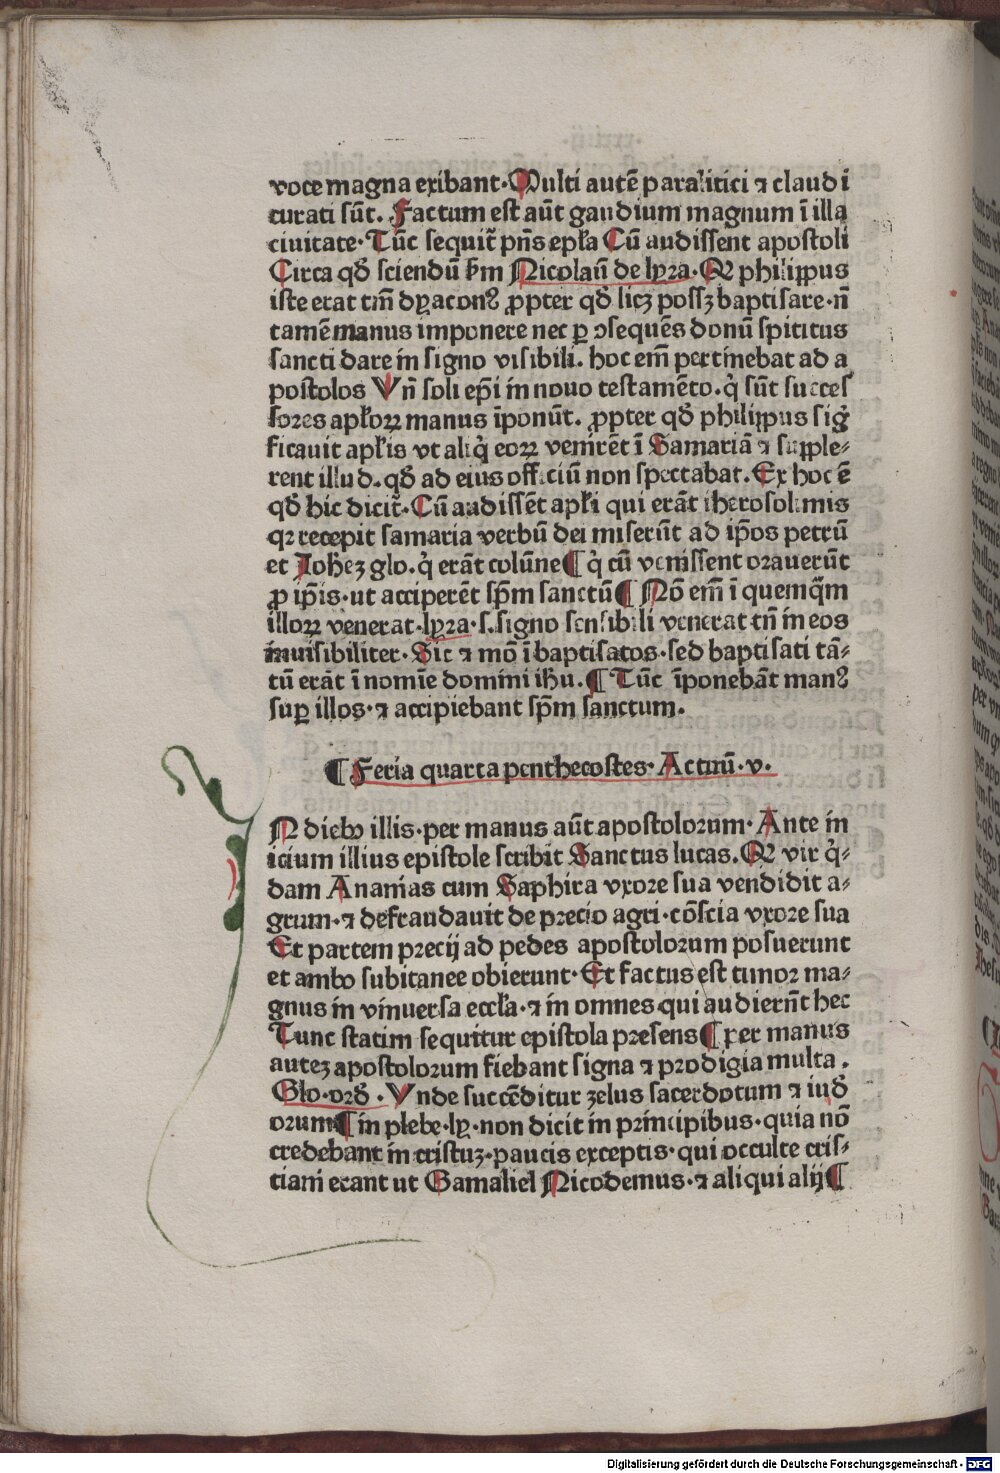 voce magna exibant·Multi autē paralitici ⁊ claudi
curati sūt. Factum est aūt gaudium magnum ī illa
ciuitate·Tūc sequit̄ pn̄s epl̄a Cū audissent apostoli
Circa qđ sciendū ẜm Nicolaū de lyra·Qꝛ philippus
iste erat tm̄ dyaconꝰ ꝓpter qđ licꝫ possꝫ baptisare·n̄
tamē manus imponere nec ꝑ ↄsequēs donū spiritus
sancti dare in signo visibili. hoc em̄ pertinebat ad a
postolos Vn̄ soli ep̄i in nouo testamēto.q̇ sūt succes
sores apl̄oꝝ manus īponūt. ꝓpter qđ philippus sigͥ
ficauit apl̄is vt aliq̇ eoꝝ venirēt ī Samariā ⁊ supple⸗
rent illud.qđ ad eius officiū non spectabat.Ex hoc ē
qđ hic dicit̄·Cū audissēt apl̄i qui erāt iherosolimis
qꝛ recepit samaria verbū dei miserūt ad ip̄os petrū
et Joh̄eꝫ glo.q̇ erāt colūne¶ q̇ cū venissent orauerūt
ꝓ ip̄is·ut acciperēt sp̄m sanctū¶ Nō em̄ ī quemq̄m
illoꝝ venerat·lyra·s.signo sensibili venerat tn̄ in eos
inuisibiliter·Sic ⁊ mō ī baptisatos·sed baptisati tā⸗
tū erāt ī nomīe domini ih̄u.¶ Tūc īponebāt manꝰ
suꝑ illos·⁊ accipiebant sp̄m sanctum.
¶Feria quarta penthecostes·Actuū·v.
N diebꝰ illis·per manus aūt apostolorum·Ante in
icium illius epistole scribit Sanctus lucas.Qꝛ vir q̇⸗
dam Ananias cum Saphira vxore sua vendidit a⸗
grum·⁊ defraudauit de precio agri·cōscia vxore sua
Et partem precij ad pedes apostolorum posuerunt
et ambo subitanee obierunt·Et factus est timor ma⸗
gnus in vniuersa eccl̄a·⁊ in omnes qui audierūt hec
Tunc statim sequitur epistola presens¶per manus
auteꝫ apostolorum fiebant signa ⁊ prodigia multa.
Glo·orđ.Vnde succēditur zelus sacerdotum ⁊ iudͤ
orum¶in plebe·ly·non dicit in principibus·quia nō
credebant in cristuꝫ·paucis exceptis·qui occulte cris⸗
tiani erant ut Gamaliel Nicodemus·⁊ aliqui alij¶
Digitalisierung gefördert durch die Deutsche Forschungsgemeinschaft - DFG